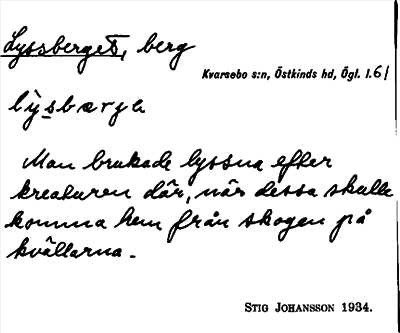 Lyssberget, berg
Kvarsebo s:n, Östkinds hd, Ögl. l.61
lỳsbærjə
Man brukade lyssna efter
kreaturen där, när dessa skulle
komma hem från skogen på
kvällarna.
STIG JOHANSSON 1934.